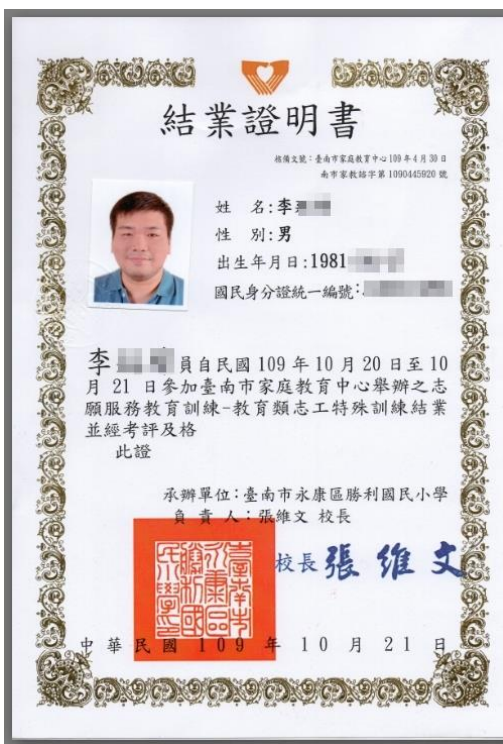 結業證明書
核備文號：臺南市家庭教育中心 109 年 4 月 30 日
南市家教諮字第 1090445920 號
姓 名：李
性 別：男
出生年月日：1981
國民身分證統一編號：
李 員自民國 109 年 10 月 20 日至 10
月 21 日參加臺南市家庭教育中心舉辦之志
願服務教育訓練-教育類志工特殊訓練結業
並經考評及格
此證
承辦單位：臺南市永康區勝利國民小學
負 責 人：張維文 校長
校長 張維文
臺南市永康區勝利國民小學印
中華民國 109 年 10 月 21 日